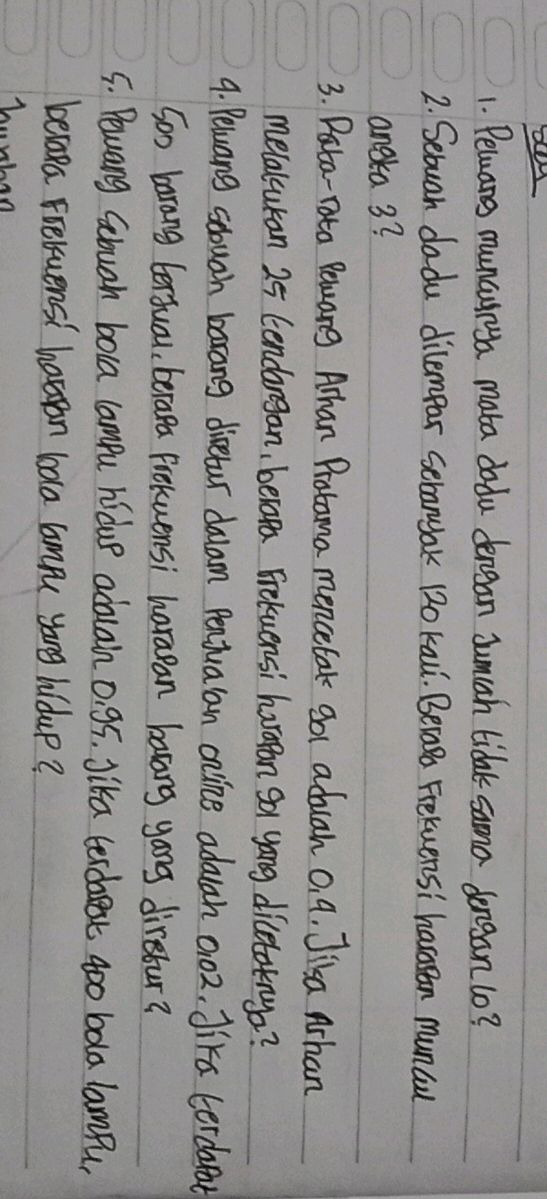 Soal
1. Peluang munculnya mata dadu dengan Jumlah tidak sama dengan 10?
2. Sebuah dadu dilempar sebanyak 120 kali. Berapa Frekuensi harapan muncul
angka 3?
3. Rata-rata Peluang Arhan Pratama mencetak gol adalah 0.4. Jika Arhan
melakukan 25 tendangan, berapa Frekuensi harapan gol yang dicetaknya?
4. Peluang sebuah barang diretur dalam Penjualan online adalah 0,02. Jika terdapat
500 barang terjual, berapa frekuensi harapan barang yang diretur?
5. Peluang sebuah bola lampu hidup adalah 0.95. Jika terdapat 400 bola lampu,
berapa Frekuensi harapan bola lampu yang hidup?